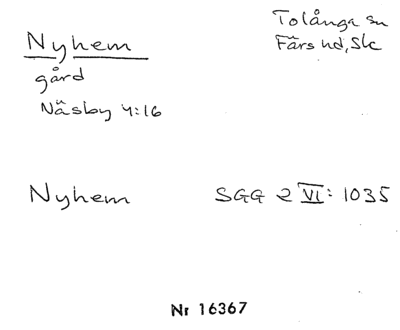 Nyhem
Tolånga sn
Färs hd, Sk
gård
Näsby 4:16
Nyhem SGG 2 VI: 1035
Nr 16367